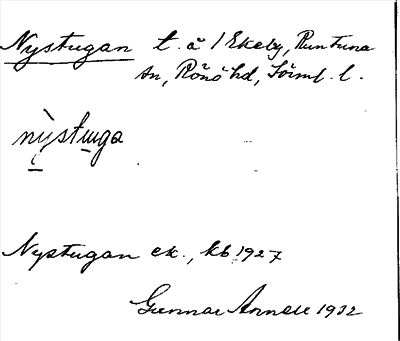 Nystugan t. å 1 Ekeby, Runtuna
sn, Rönö hd, Sörml. l.
nỳstuga
Nystugan ek., kb 1927
Gunnar Annell 1932